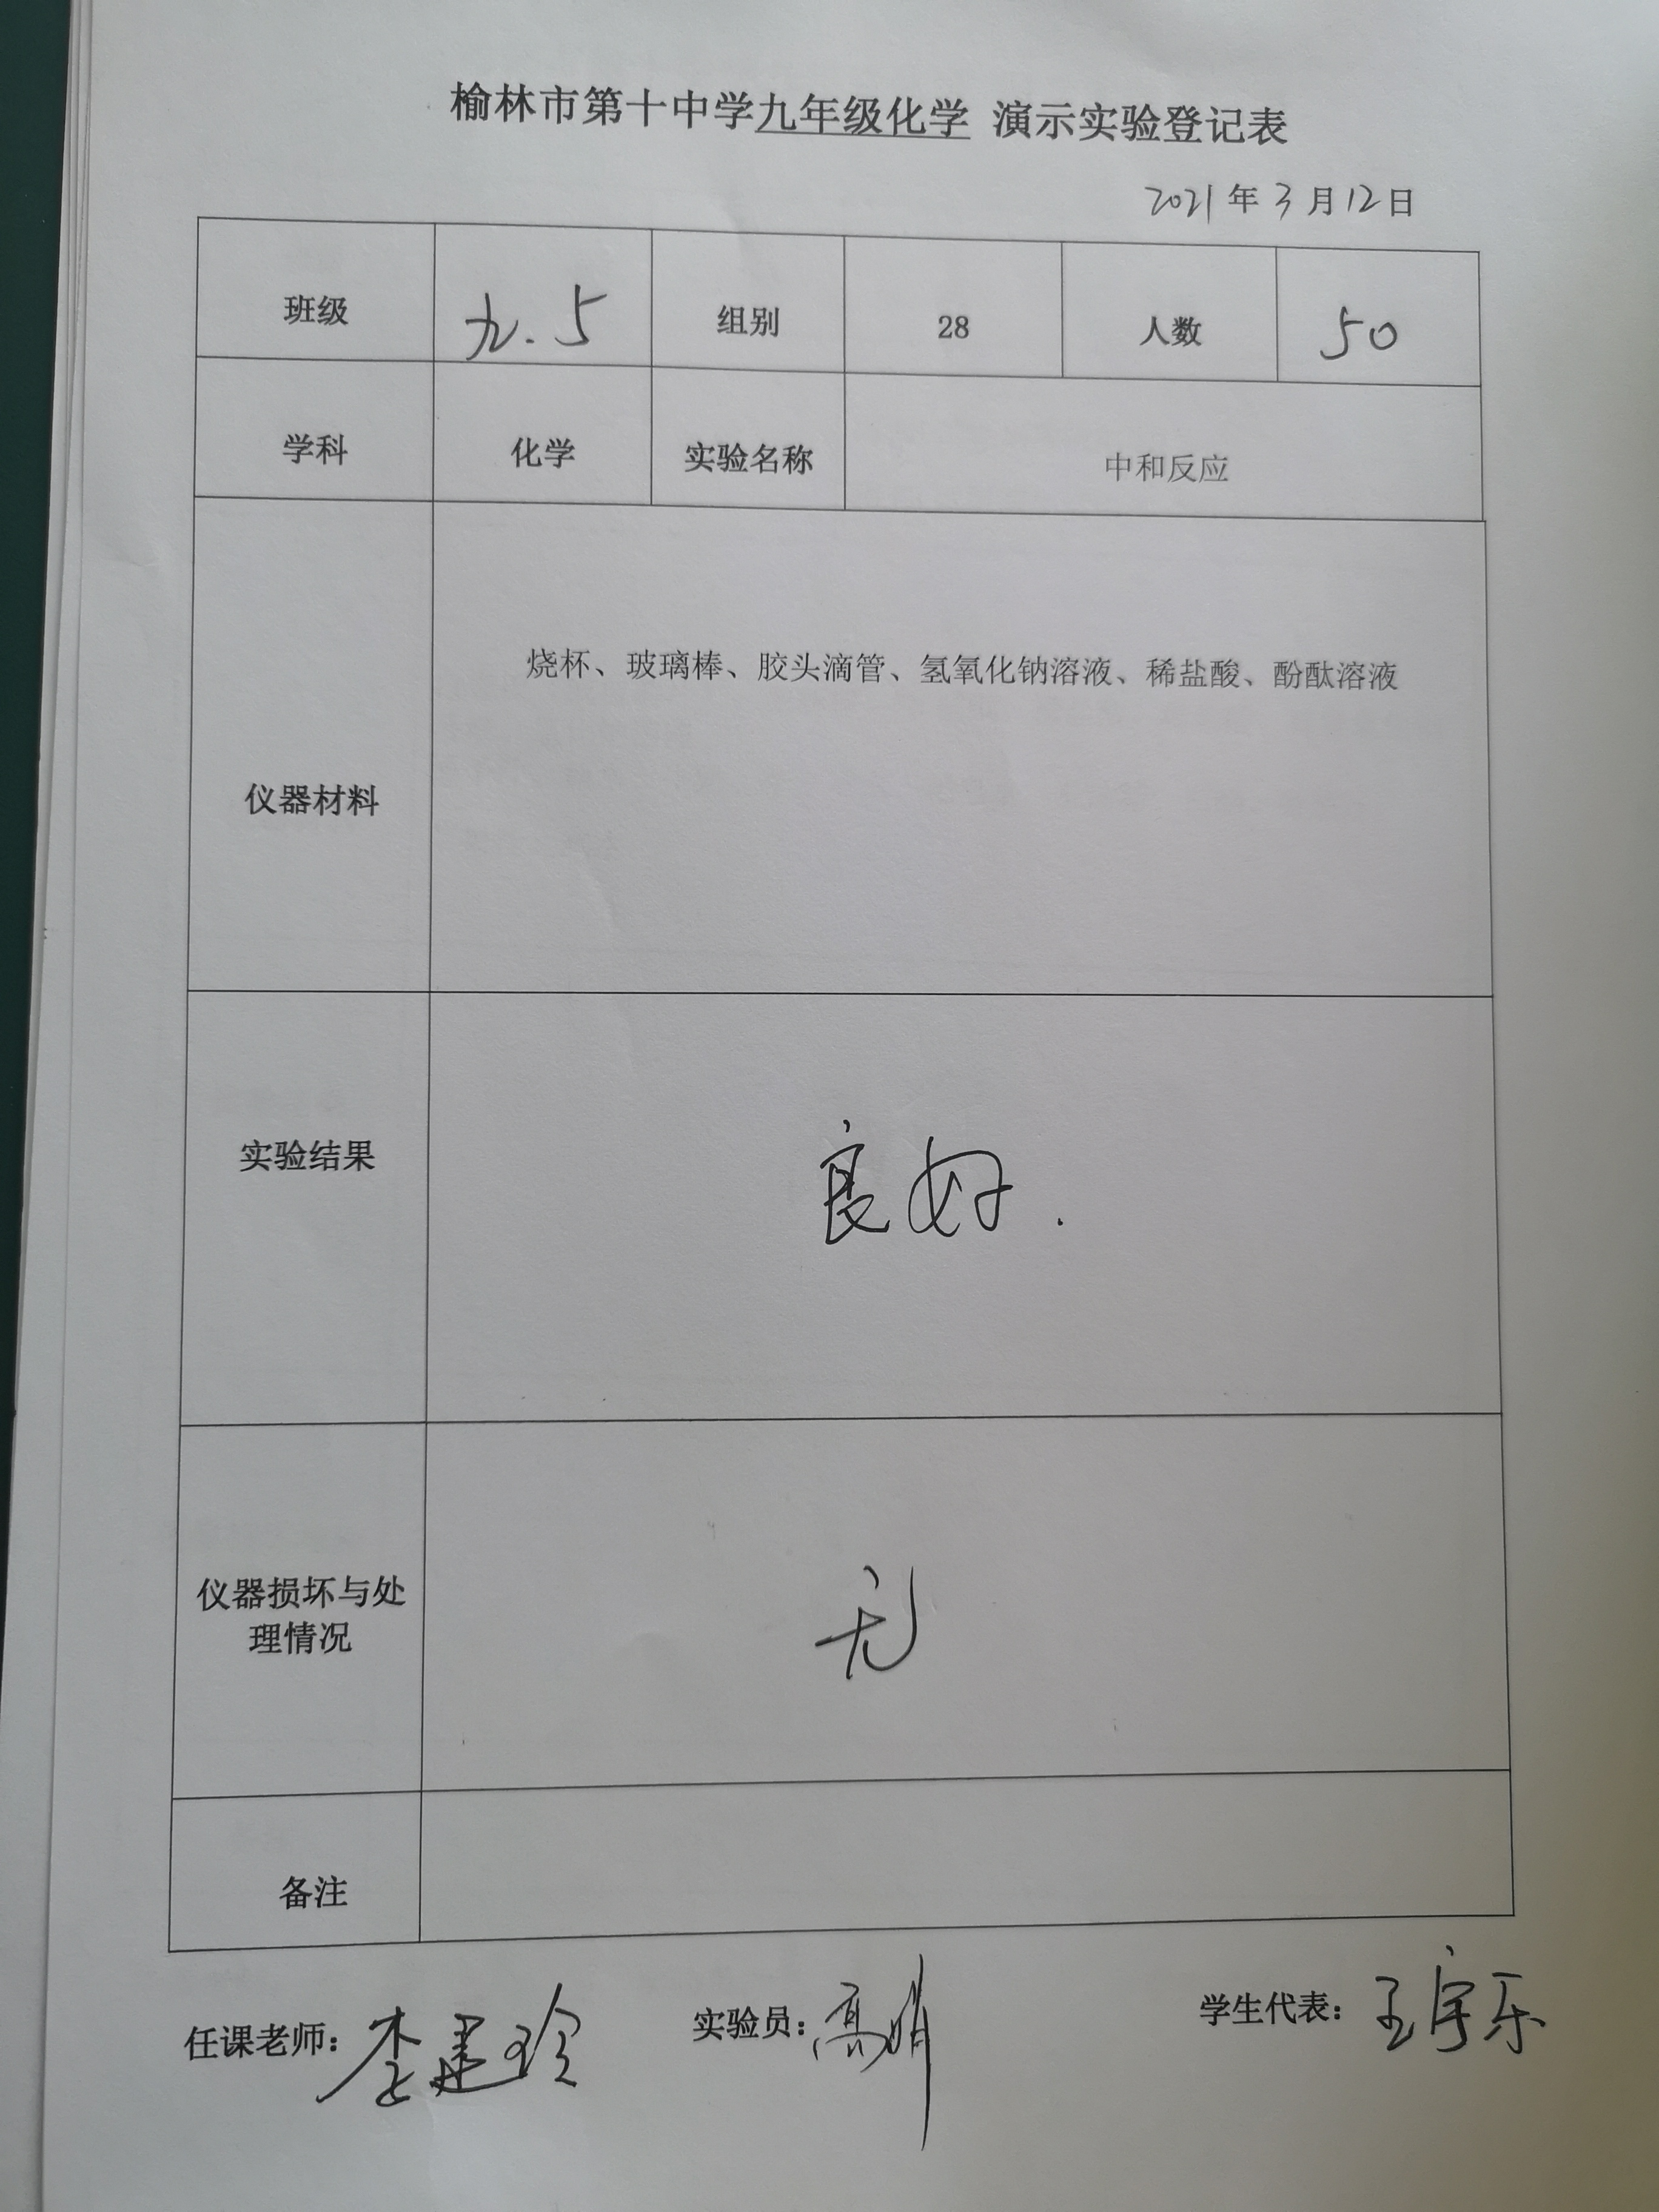 榆林市第十中学九年级化学 演示实验登记表
2021年3月12日
班级 九.5 组别 28 人数 50
学科 化学 实验名称 中和反应
仪器材料 烧杯、玻璃棒、胶头滴管、氢氧化钠溶液、稀盐酸、酚酞溶液
实验结果 良好.
仪器损坏与处
理情况 无
备注
任课老师：李建玲 实验员：高 学生代表：王宇乐